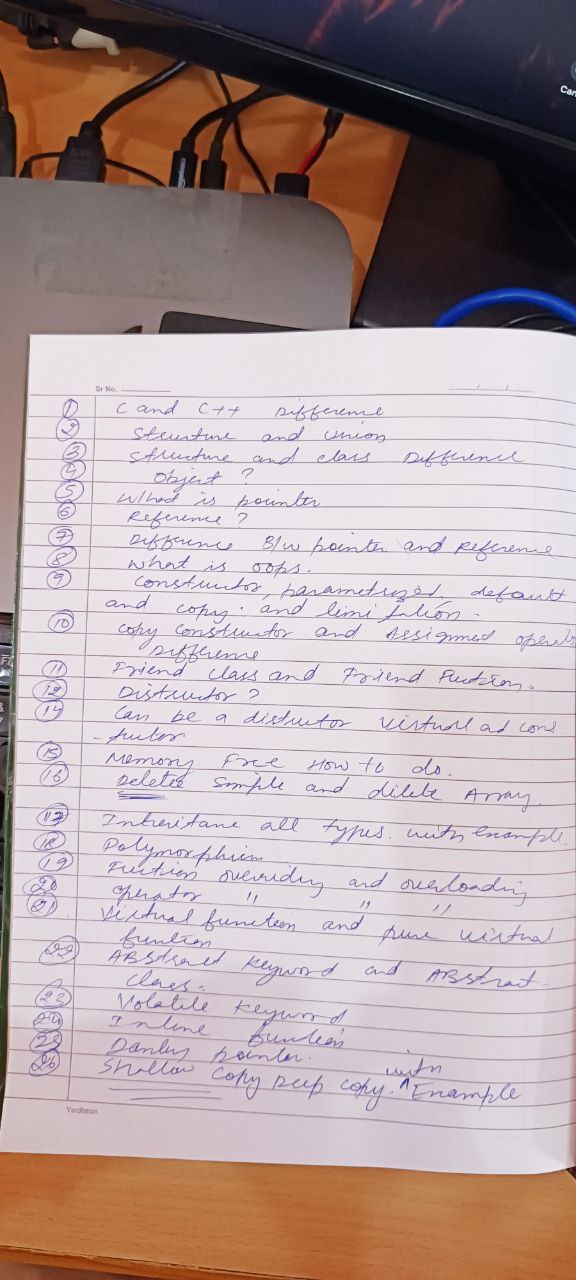 Can
Sr No.
1 C and C++ Difference
2 Structure and union
3 Structure and class Difference
4 Object ?
5 What is pointer
6 Reference ?
7 Difference B/w pointer and Reference
8 What is oops.
9 Constructor, parametrized, default
and copy. and limitation.
10 Copy Constructor and Assignment operator
Difference
11 Friend Class and Friend Fuction.
12 Distructor ?
14 Can be a distructor virtual ad cons
-tructor
15 Memory Free How to do.
16 Delete Simple and dilete Array.
17 Inheritane all types. with example.
18 Polymorphism
19 Fuction overriding and overloading
20 Operator " " "
21 Virtual function and pure virtual
function
22 ABstract Keyword and ABstract
class.
23 Volatile Keyword
24 Inline function
25 pointer.
with
26 Shallow Copy Deep Copy. ^ Example
Vardhman